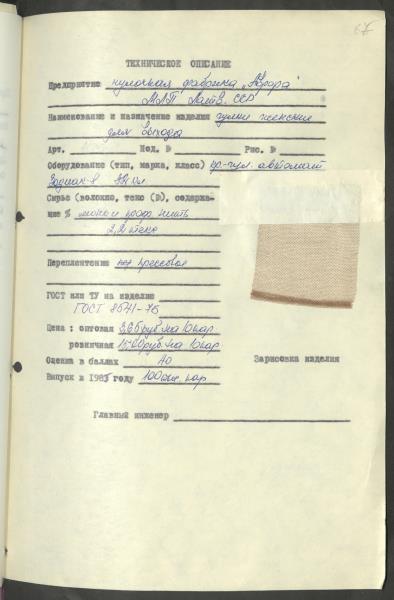 67
ТЕХНИЧЕСКОЕ ОПИСАНИЕ
Предприятие чулочная фабрика „Аврора"
МЛП Латв. ССР
Наименование и назначение изделия чулки женские
для выхода
Арт. Мод. № Рис. №
Оборудование (тип, марка, класс) кр. чул. автомат
Зодиак-8
Сырье (волокно, текс (№), содержа-
ние % мононить
2,2 текс
Переплетение прессовое
ГОСТ или ТУ на изделие
ГОСТ 8541-76
Цена : оптовая руб на 10 пар
розничная 15-00 руб на 10 пар
Оценка в баллах 40
Зарисовка изделия
Выпуск в 1985 году 100 тыс. пар
Главный инженер